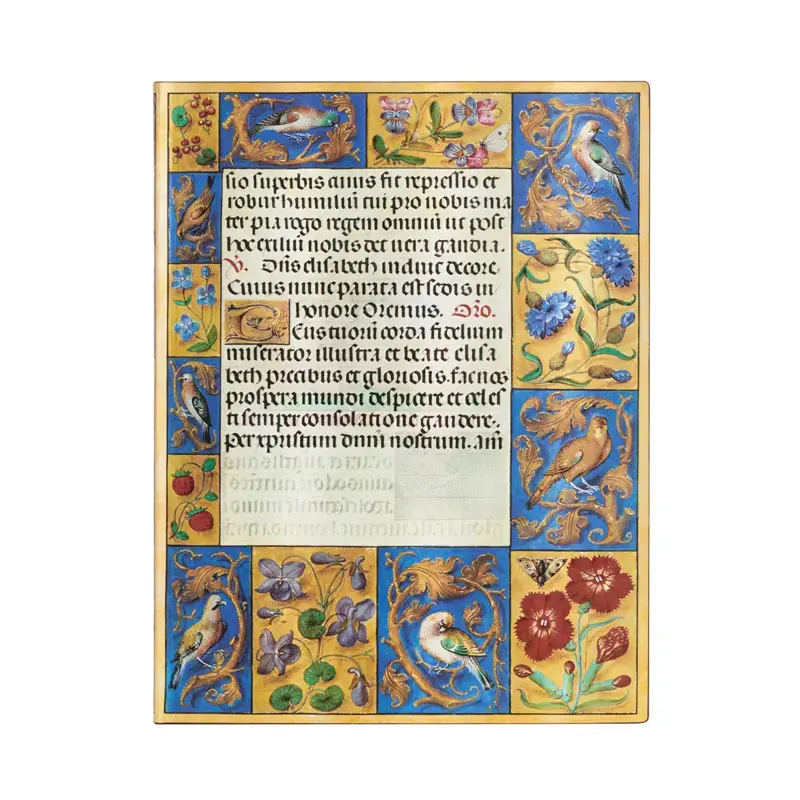 sio superbis cuius fit repressio et
robur humiliū tu pro nobis ma
ter pia rogo regem omniū ut post
hoc exiliū nobis det uera gaudia.
V. Dn̄s elisabeth induit decore.
Cuius nunc parata est sedis in
honore Oremus. Orō.
DEus tuorū corda fidelium
miserator illustra et beate elisa
beth precibus et gloriosis. fac nos
prospera mundi despicere et celes
ti semper consolatione gaudere.
Per xpristum dnm̄ nostrum. Am̄